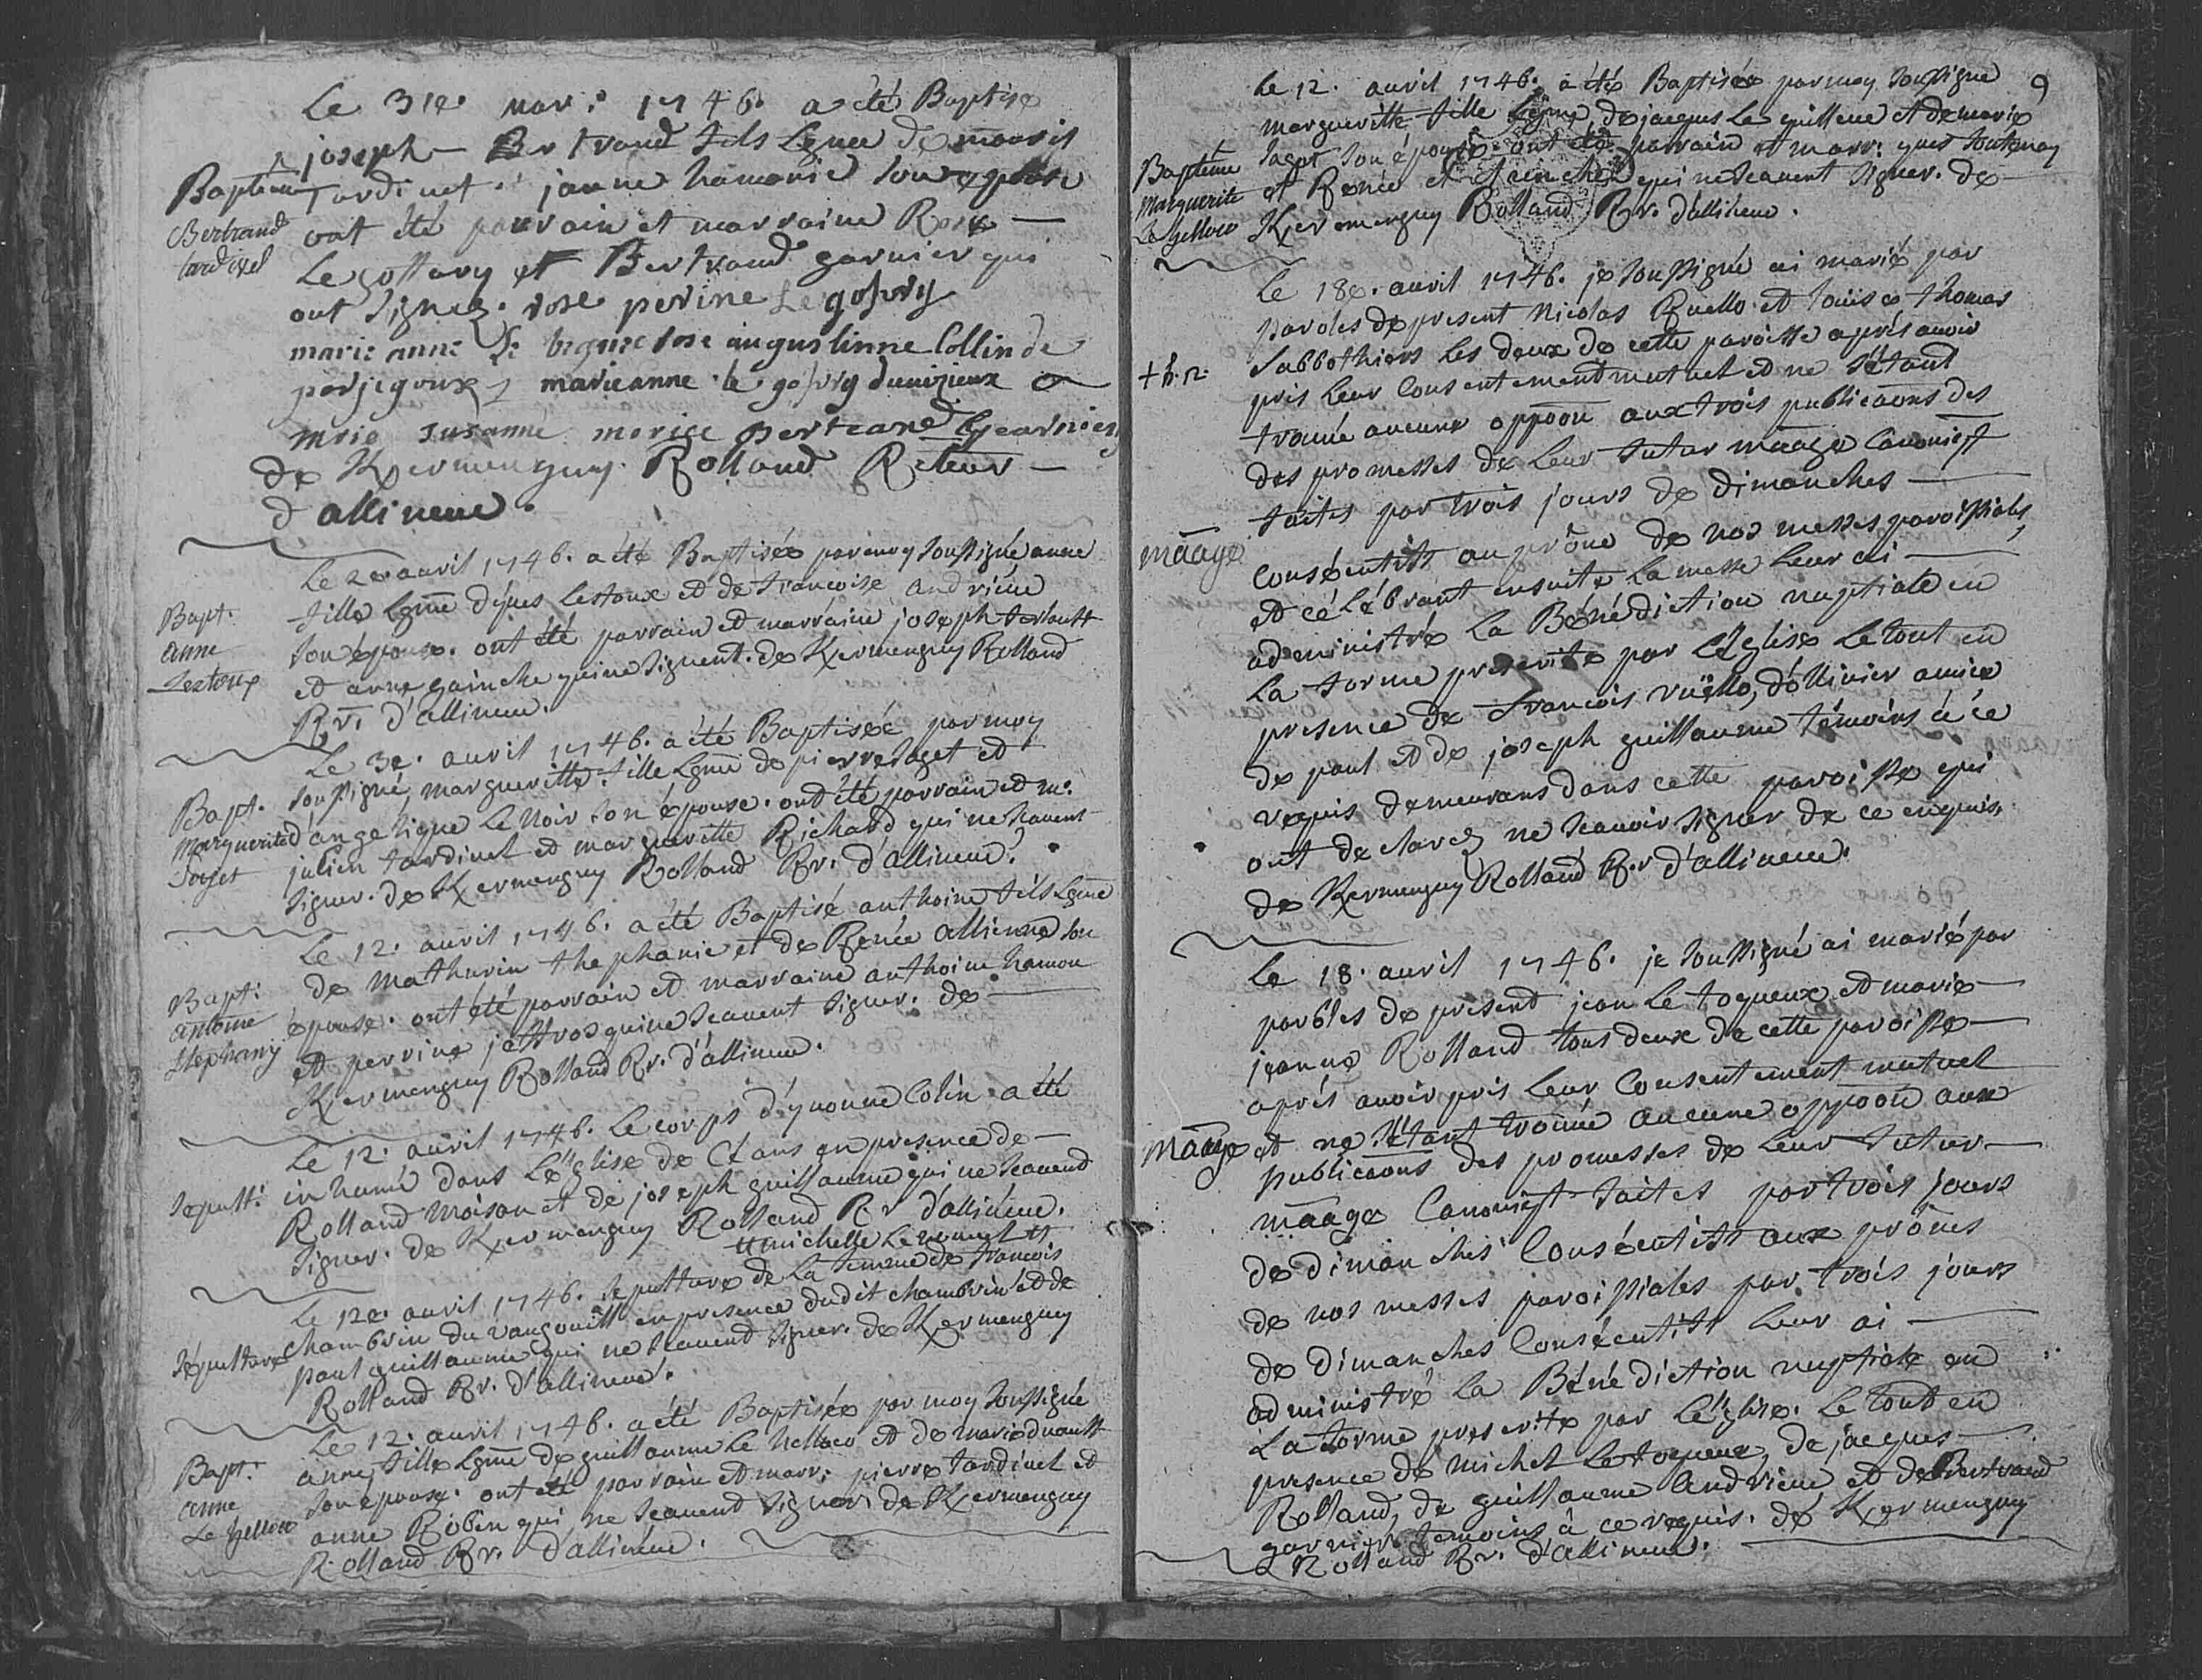 Le 31e. mars 1746. a été Baptisé
joseph Bertrand fils Lgme de
Baptême Tardivet jeanne hamonic son épouse
Bertrand
tardivel
ont été parrain et marraine Rose
Le goffvry et Bertrand garnier qui
ont signez. rose perine Le gofvry
marie anne augustinne Collin de
marieanne le gofvry
marie Suzanne morice Bertrand Gearnier
de Kermenguy Rolland Recteur
d'allineuc.
Le 2e avril 1746. a été Baptisée par moy soussigné anne
Bapt.
anne
Lestoux
fille Lgme d'yves Lestoux et de francoise andrieux
son épouse. ont été parrain et marraine joseph
et anne gainche qui ne signent. de Kermenguy Rolland
Rr. d'allineuc.
Le 3e. avril 1746. a été Baptisée par moy
Bapt.
Marguerite
Soyet
soussigné, margueritte fille Lgme de pierre et
d'angelique Le Noir son épouse. ont été parrain et m:
julien tardivel et margueritte Richard qui ne scavent
signer. de Kermenguy Rolland Rr. d'allineuc.
Le 12. avril 1746. a été Baptisé anthoine fils Lgme
Bapt:
antoine
Stephany
de Mathurin thephanie et de Renée allienne son
épouse. ont été parrain et marraine anthoine hamon
et perrine qui ne scavent signer. de
Kermenguy Rolland Rr. d'allineuc.
Le 12. avril 1746. Le corps d'yvonne Colin a été
Sepult:
inhumé dans L'église de Céans en presence de
Rolland Moisan et de joseph guillaume qui ne scavent
signer. de Kermenguy Rolland Rr d'allineuc.
michelle
Le 12e. avril 1746. sepulture de La femme de francois
Sépulture
chambrin du en presence dudit chambrin et de
paul guillaume qui ne scavent signer. de Kermenguy
Rolland Rr. d'allineuc.
Le 12. avril 1746. a été Baptisée par moy soussigné
Bapt.
anne
Le helloco
anne, fille Lgme de guillaume Le helloco et de marie
son épouse. ont été parrain et marr: pierre tardivel et
anne Robin qui ne scavent signer. de Kermenguy
Rolland Rr. d'allineuc.
9
Le 12. avril 1746. a été Baptisée par moy soussigné
margueritte fille Lgme de jacques Le et de marie
Baptême
Marguerite
son épouse. ont été parrain et marr: yves
et Renée qui ne scavent signer. de
Kermenguy Rolland Rr. d'allineuc.
Le 18e. avril 1746. je soussigné ai marié par
paroles de present Nicolas Ruello et Louise thomas
Sabbothiers Les deux de cette paroisse aprés avoir
pris Leur Consentement mutuel et ne s'étant
trouvé aucune oppoon aux trois publicaons des
des promesses de Leur futur māage Canoniqt
faites par trois jours de dimanches
māage
Consécutifs au prône de nos messes paroissiales
et célébrant ensuite La messe Leur ai
administré La Bénédiction nuptiale en
La forme prescrite par L'Eglise Le tout en
presence de francois ruëllo, d'ollivier amicé
de paul et de joseph guillaume témoins à ce
requis demeurans dans cette paroisse qui
ont declarez ne scavoir signer de ce enquis.
de Kermenguy Rolland Rr d'allineuc.
Le 18. avril 1746. je soussigné ai marié par
parolles de present jean Le toqueux et marie
jeanne Rolland tous deux de cette paroisse
aprés avoir pris Leur Consentement mutuel
māage
et ne s'étant trouvé aucune oppoon aux
publicaons des promesses de Leur futur
māage Canoniqt faites par trois jours
de dimanches Consécutifs aux prônes
de nos messes paroissiales par trois jours
de dimanches Consécutifs Leur ai
administré La Bénédiction nuptiale en
La forme prescrite par L'église. Le tout en
presence de Michel Le toqueux, de jacques
Rolland, de guillaume andrieux et de Bertrand
garnier temoins à ce requis. de Kermenguy
Rolland Rr. d'allineuc.